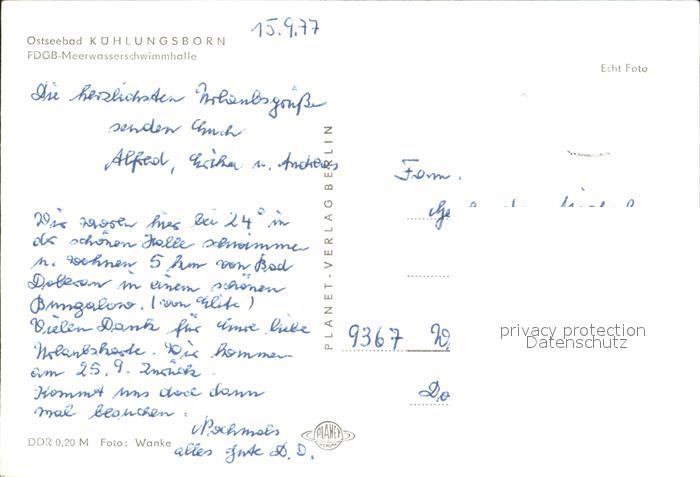 15.9.77
Ostseebad KÜHLUNGSBORN
FDGB-Meerwasserschwimmhalle
Echt Foto
Die herzlichsten Urlaubsgrüße
senden Euch
Alfred, Erika u. Andreas
Wir waren hier bei 24° in
der schönen Halle schwimmen
u. wohnen 5 km von Bad
Doberan in einem schönen
Bungalow. (von Elite)
Vielen Dank für Eure liebe
Urlaubskarte. Wir kommen
am 25.9. zurück.
Kommt uns doch dann
mal besuchen.
Nochmals
alles Gute D. O.
PLANET-VERLAG BERLIN
Fam.
9367 W
Do
privacy protection
Datenschutz
DDR 0,20 M Foto: Wanke
PLANET